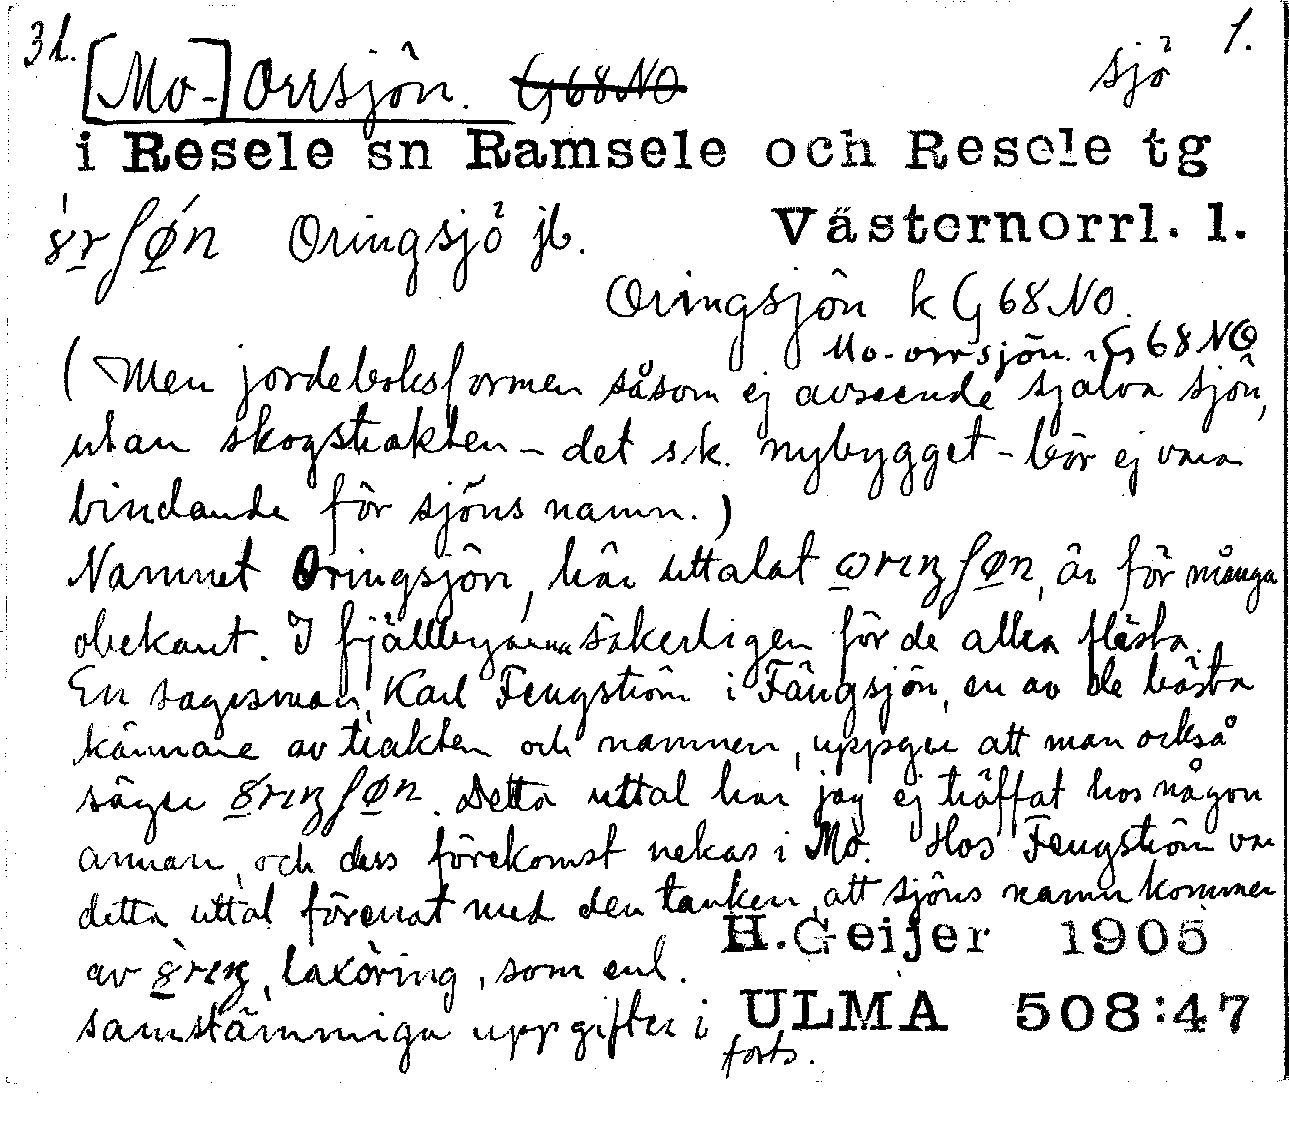 3 bl. 1.
[Mo-]Orrsjön. G68NO sjö
i Resele sn Ramsele och Resele tg
Oringsjö jb. Västernorrl. l.
Oringsjön k G68NO.
Mo-orrsjön. G68NO
(Men jordeboksformen såsom ej avseende själva sjön,
utan skogstrakten – det s.k. nybygget – bör ej vara
bindande för sjöns namn.)
Namnet Oringsjön, här uttalat ωrıŋʃøn, är för många
obekant. I fjällbyarna säkerligen för de allra flesta.
En sagesman, Karl Fengström i Fängsjön, en av de bästa
kännare av trakten och namnen, uppger att man också
säger 8rıŋʃøn. Detta uttal har jag ej träffat hos någon
annan, och dess förekomst nekas i Mo. Hos Fengström var
detta uttal förenat med den tanken, att sjöns namn kommer
av 8̀rıŋ, laxöring, som enl. H. Geijer 1905
samstämmiga uppgifter i ULMA 508:47
forts.